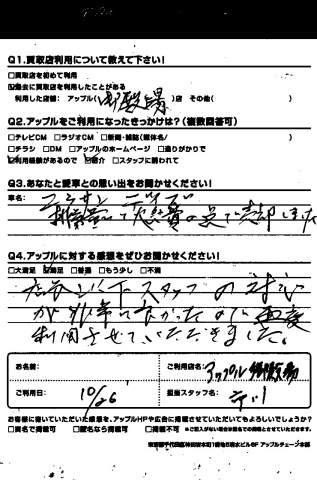 Q1.買取店利用について教えて下さい！
□買取店を初めて利用
☑過去に買取店を利用したことがある
利用した店舗： アップル( )店 その他( )
Q2.アップルをご利用になったきっかけは？(複数回答可)
□テレビCM □ラジオCM □新聞・雑誌(媒体名/ )
□チラシ □DM □アップルのホームページ □通りがかりで
☑利用経験があるので ☑紹介 □スタッフに誘われて
Q3.あなたと愛車との思い出をお聞かせください！
車名：
Q4.アップルに対する感想をぜひお聞かせください！
□大満足 ☑満足 □普通 □もう少し □不満
店長以下スタッフの対応
が非常に良かったので再度
利用させていただきました。
お名前：
ご利用店名： アップル
ご利用日： 10/26
担当スタッフ名：
お客様に書いていただいた感想を、アップルHPや広告に掲載させていただいてもよろしいでしょうか？
□実名で掲載可 □匿名なら掲載可 □掲載不可 ※ご記入がない場合は匿名での掲載とさせていただきます。